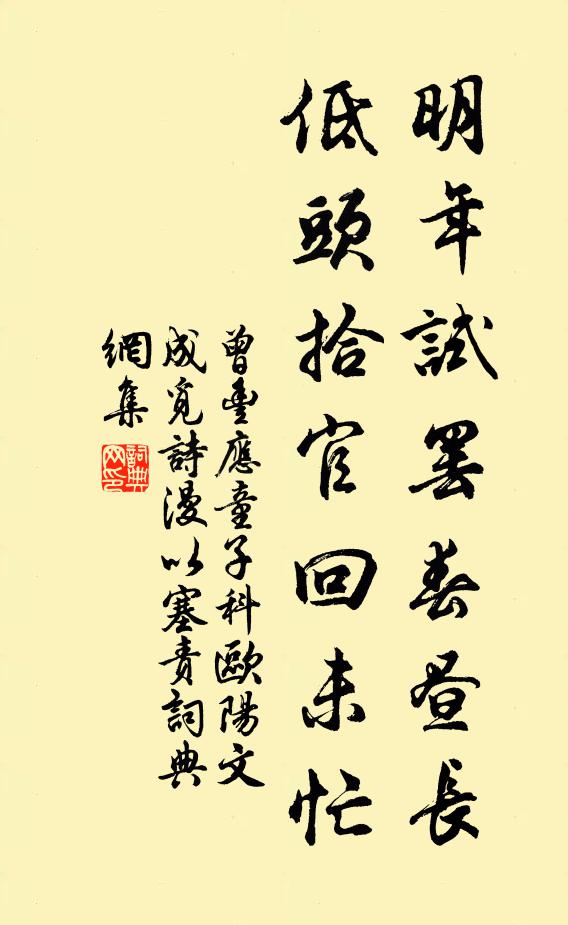 明年試罷春晝長
低頭拾官回未忙
曾豐應童子科歐陽文
成覓詩漫以塞責詞典
網集
詞典網印